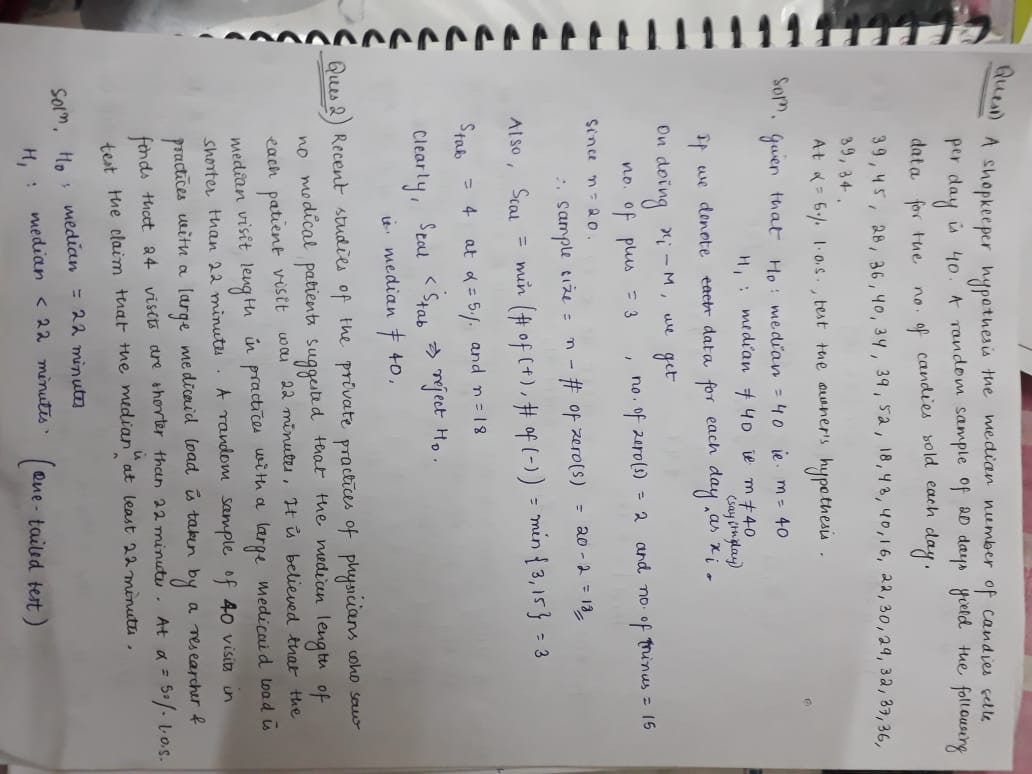 Ques1) A shopkeeper hypothesis the median number of candies sells
per day is 40. A random sample of 20 days yield the following
data for the no. of candies sold each day.
39, 45, 28, 36, 40, 34, 39, 52, 18, 43, 40, 16, 22, 30, 29, 32, 37, 36,
39, 34.
At α = 5% l.o.s., test the owner's hypothesis.
Soln. Given that H₀ : median = 40 ie. m = 40
H₁ : median ≠ 40 ie m ≠ 40
(say ith day)
If we denote each data for each day ^ as xᵢ.
On doing xᵢ - M, we get
no. of plus = 3 , no. of zero(s) = 2 and no. of minus = 15
Since n = 20.
∴ sample size = n - # of zero(s) = 20 - 2 = 18
Also, Scal = min (# of (+), # of (-)) = min {3, 15} = 3
Stab = 4 at α = 5% and n = 18
Clearly, Scal < Stab ⇒ reject H₀.
ie. median ≠ 40.
Ques 2) Recent studies of the private practices of physicians who saw
no medical patients suggested that the median length of
each patient visit was 22 minutes. It is believed that the
median visit length in practices with a large medicaid load is
shorter than 22 minutes. A random sample of 40 visits in
practices with a large medicaid load is taken by a researcher &
finds that 24 visits are shorter than 22 minutes. At α = 5% l.o.s.
test the claim that the median ^is at least 22 minutes.
Soln. H₀ : median = 22 minutes
H₁ : median < 22 minutes. (One-tailed test)